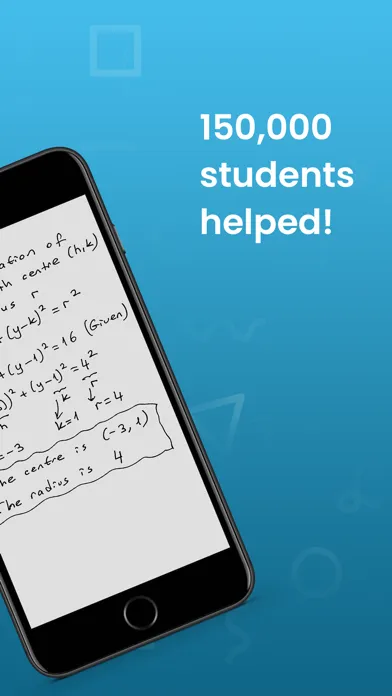 150,000
students
helped!
ation of
th centre (h,k)
us r
(y-k)² = r²
+(y-1)² = 16 (Given)
))² + (y-1)² = 4²
h k r
= -3 k=1 r=4
he centre is (-3, 1)
The radius is 4